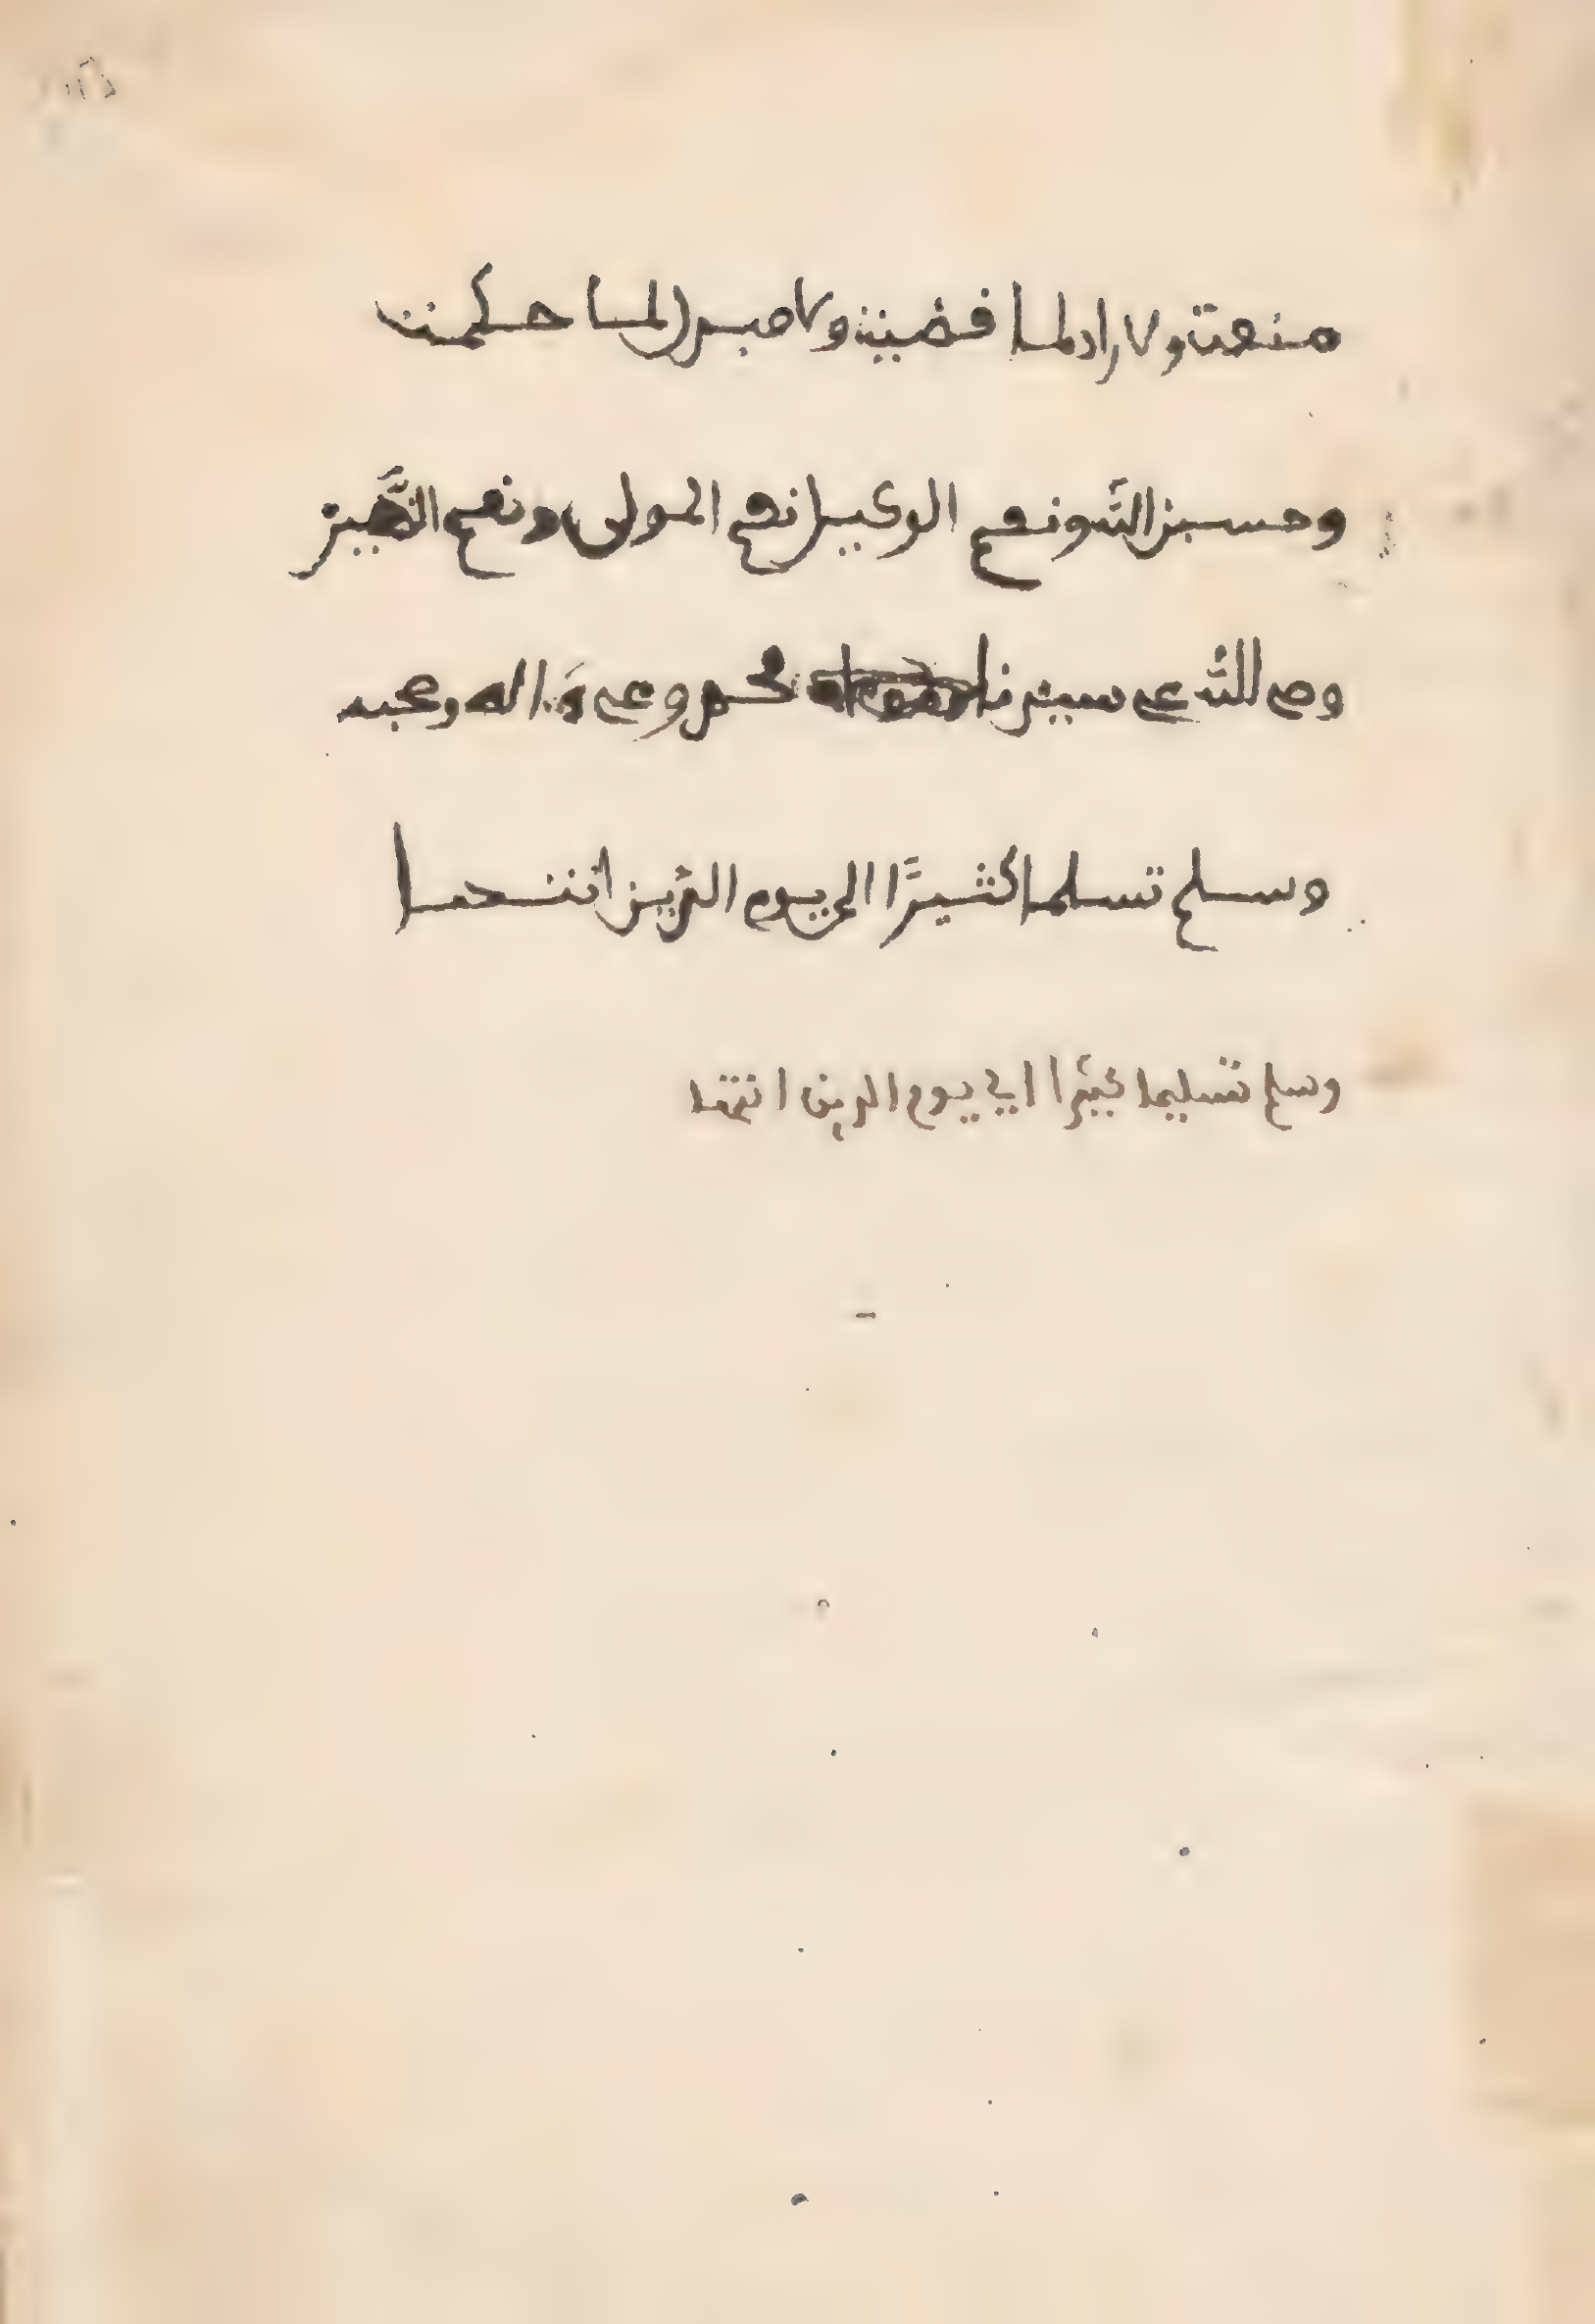 منعت ولا راد لما قضيت ولا مبدل لما حكمت
وحسبنا الله ونعم الوكيل نعم المولى ونعم النصير
وصلى الله على سيدنا محمد وعلى اله وصحبه
وسلم تسلما كثيرًا الى يوم الدين انتهى
وسلم تسليما كثيرًا الي يوم الدين انتها